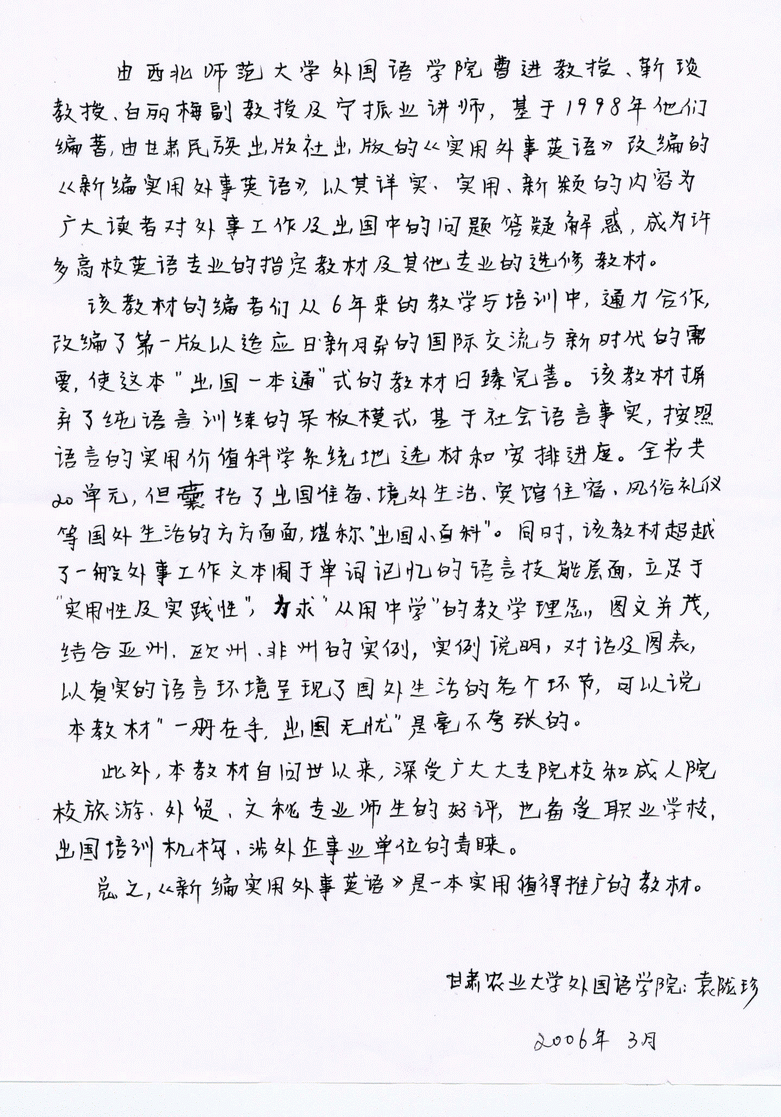 由西北师范大学外国语学院曹进教授、靳琰
教授、白丽梅副教授及宁振业讲师，基于1998年他们
编著，由甘肃民族出版社出版的《实用外事英语》改编的
《新编实用外事英语》，以其详实、实用、新颖的内容为
广大读者对外事工作及出国中的问题答疑解惑，成为许
多高校英语专业的指定教材及其他专业的选修教材。
该教材的编者们从6年来的教学与培训中，通力合作，
改编了第一版以适应日新月异的国际交流与新时代的需
要，使这本"出国一本通"式的教材日臻完善。该教材摒
弃了纯语言训练的呆板模式，基于社会语言事实，按照
语言的实用价值科学系统地选材和安排进度。全书共
20单元，但囊括了出国准备、境外生活、宾馆住宿、风俗礼仪
等国外生活的方方面面，堪称"出国小百科"。同时，该教材超越
了一般外事工作文本囿于单词记忆的语言技能层面，立足于
"实用性及实践性"，力求"从用中学"的教学理念，图文并茂，
结合亚洲、欧洲、非洲的实例，实例说明，对话及图表，
以真实的语言环境呈现了国外生活的各个环节，可以说
本教材"一册在手，出国无忧"是毫不夸张的。
此外，本教材自问世以来，深受广大大专院校和成人院
校旅游、外贸、文秘专业师生的好评，也备受职业学校，
出国培训机构、涉外企事业单位的青睐。
总之，《新编实用外事英语》是一本实用值得推广的教材。
甘肃农业大学外国语学院：袁陇珍
2006年 3月